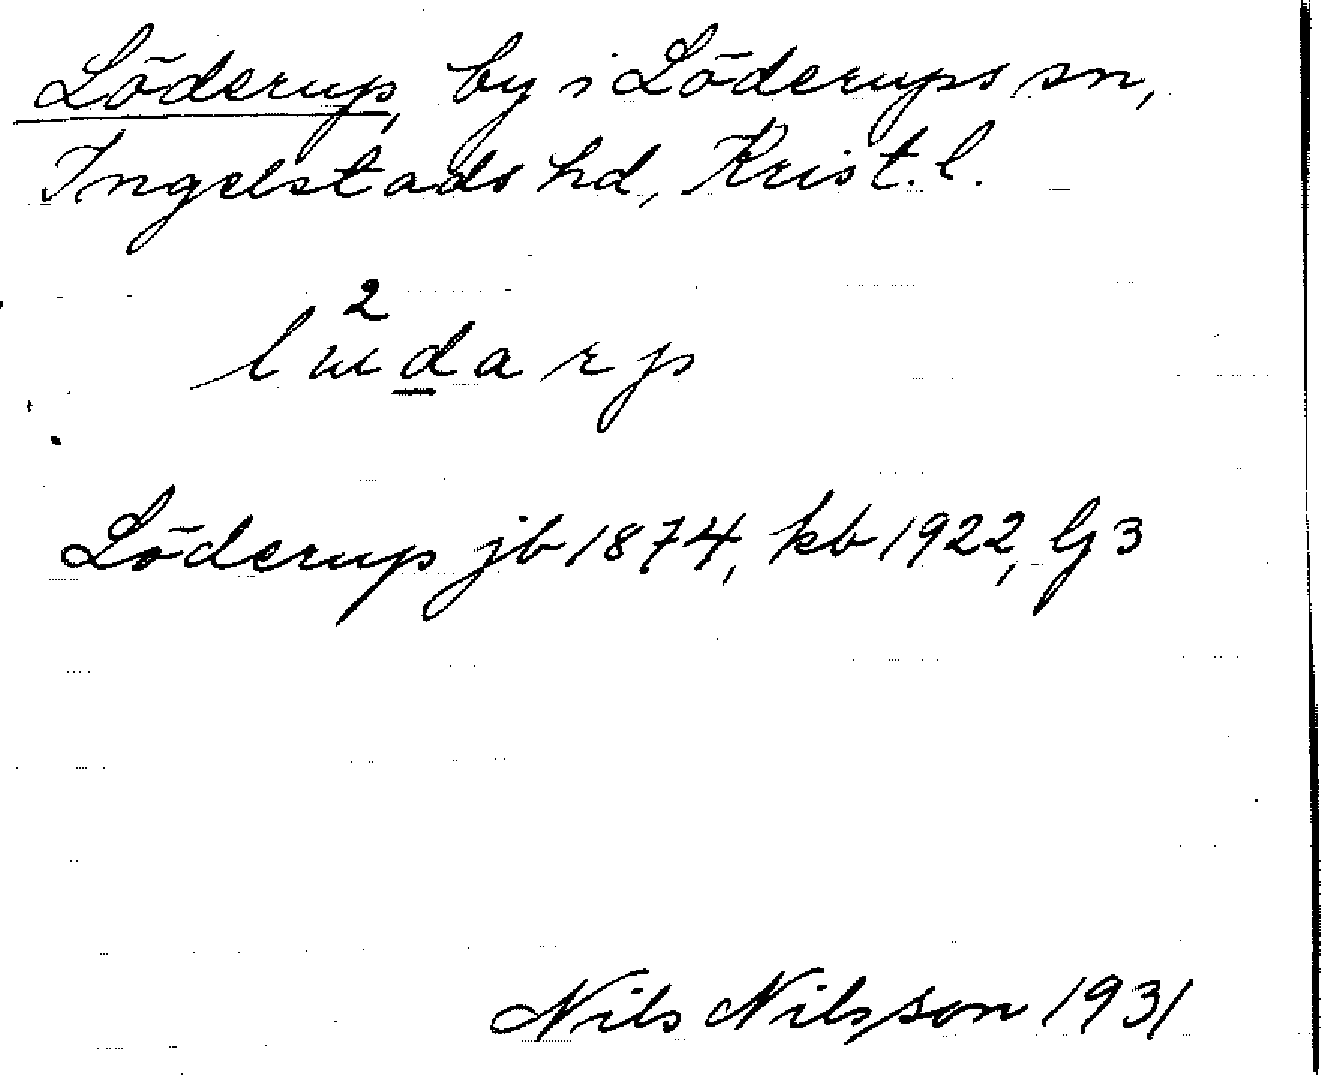 Löderup, by i Löderups sn,
Ingelstads hd, Krist. l.
2
lɯdarp
Löderup jb 1874, kb 1922, G3
Nils Nilsson 1931